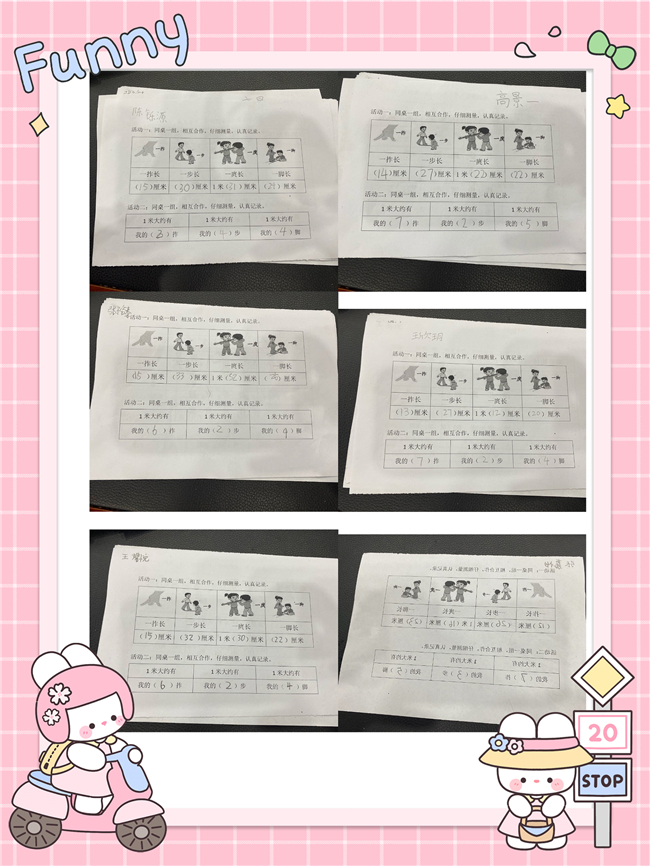 Funny
活动一：同桌一组，相互合作，仔细测量，认真记录。
一拃 一步 一庹 一脚
一拃长 一步长 一庹长 一脚长
(15)厘米 (30)厘米 1米(31)厘米 厘米
活动二：同桌一组，相互合作，仔细测量，认真记录。
1米大约有 1米大约有 1米大约有
我的( )拃 我的( )步 我的(4)脚
高景一
活动一：同桌一组，相互合作，仔细测量，认真记录。
一拃 一步 一庹 一脚
一拃长 一步长 一庹长 一脚长
(14)厘米 (27)厘米 1米(22)厘米 (22)厘米
活动二：同桌一组，相互合作，仔细测量，认真记录。
1米大约有 1米大约有 1米大约有
我的(7)拃 我的(2)步 我的(5)脚
活动一：同桌一组，相互合作，仔细测量，认真记录。
一拃 一步 一庹 一脚
一拃长 一步长 一庹长 一脚长
(15)厘米 (33)厘米 1米 厘米 厘米
活动二：同桌一组，相互合作，仔细测量，认真记录。
1米大约有 1米大约有 1米大约有
我的(6)拃 我的(2)步 我的(4)脚
活动一：同桌一组，相互合作，仔细测量，认真记录。
一拃 一步 一庹 一脚
一拃长 一步长 一庹长 一脚长
(13)厘米 (27)厘米 1米(12)厘米 (20)厘米
活动二：同桌一组，相互合作，仔细测量，认真记录。
1米大约有 1米大约有 1米大约有
我的(7)拃 我的(2)步 我的(4)脚
活动一：同桌一组，相互合作，仔细测量，认真记录。
一拃 一步 一庹 一脚
一拃长 一步长 一庹长 一脚长
(15)厘米 (32)厘米 1米(30)厘米 (22)厘米
活动二：同桌一组，相互合作，仔细测量，认真记录。
1米大约有 1米大约有 1米大约有
我的(6)拃 我的(2)步 我的(4)脚
活动一：同桌一组，相互合作，仔细测量，认真记录。
一拃长 一步长 一庹长 一脚长
活动二：同桌一组，相互合作，仔细测量，认真记录。
1米大约有 1米大约有 1米大约有
我的(7)拃 我的(3)步 我的 脚
20
STOP